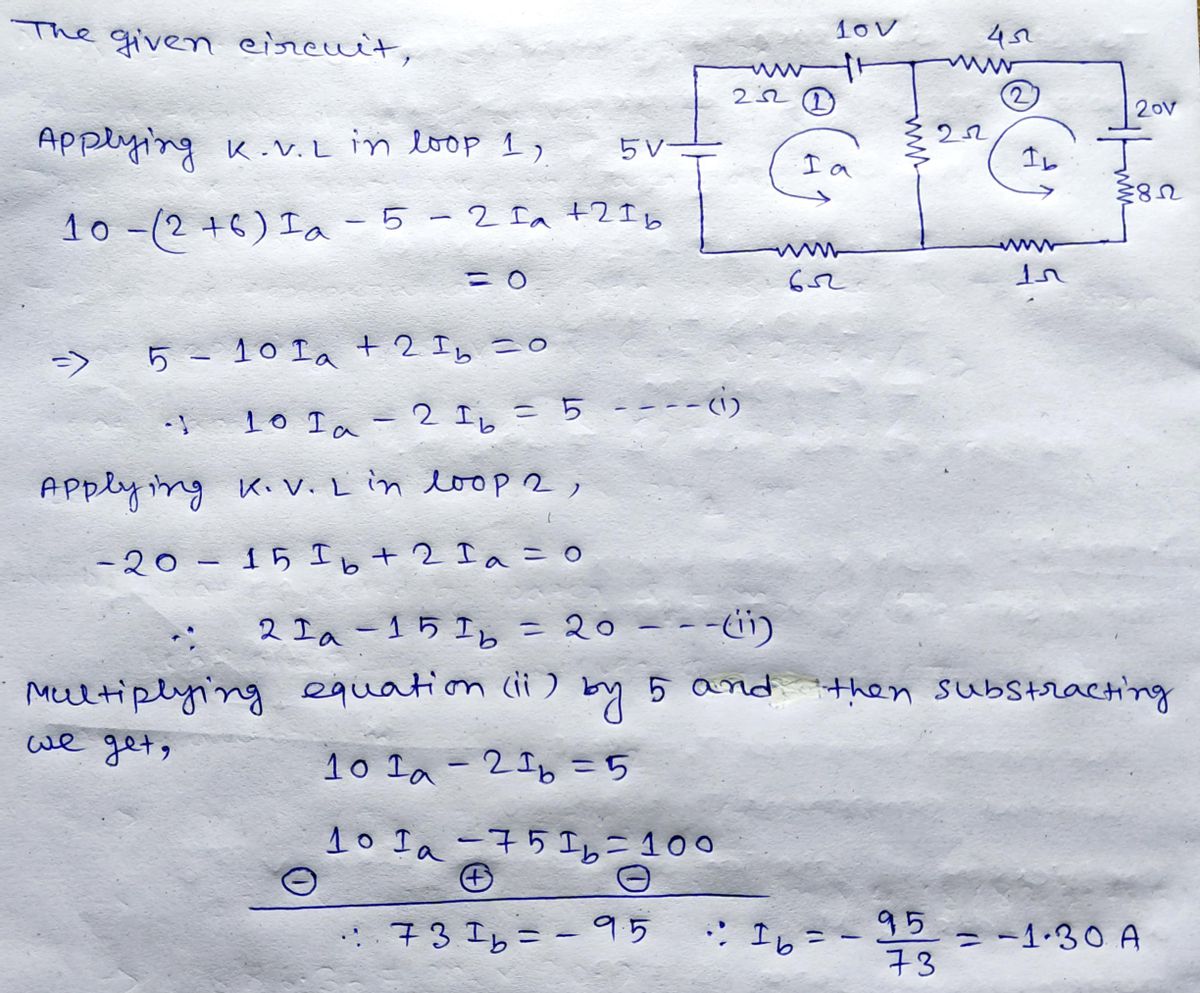 The given circuit,
10V
4Ω
2Ω
1
2
20V
5V
Ia
2Ω
Ib
8Ω
6Ω
1Ω
Applying K.V.L in loop 1,
10 - (2 + 6) Ia - 5 - 2 Ia + 2 Ib
= 0
⇒ 5 - 10 Ia + 2 Ib = 0
∴ 10 Ia - 2 Ib = 5 ----(i)
Applying K.V.L in loop 2,
-20 - 15 Ib + 2 Ia = 0
∴ 2 Ia - 15 Ib = 20 ----(ii)
Multiplying equation (ii) by 5 and then substracting
we get,
10 Ia - 2 Ib = 5
10 Ia - 75 Ib = 100
⊖ ⊕ ⊖
∴ 73 Ib = - 95 ∴ Ib = - 95/73 = -1.30 A